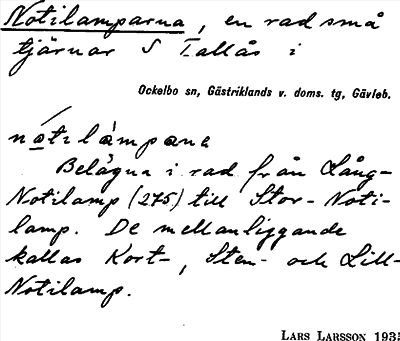 Notilamparna, en rad små
tjärnar S Tallås i
Ockelbo sn, Gästriklands v. doms. tg, Gävleb.
nɑ́tilàmpɑnɑ
Belägna i rad från Lång-
Notilamp (275) till Stor-Noti-
lamp. De mellanliggande
kallas Kort-, Sten- och Lill-
Notilamp.
LARS LARSSON 1935